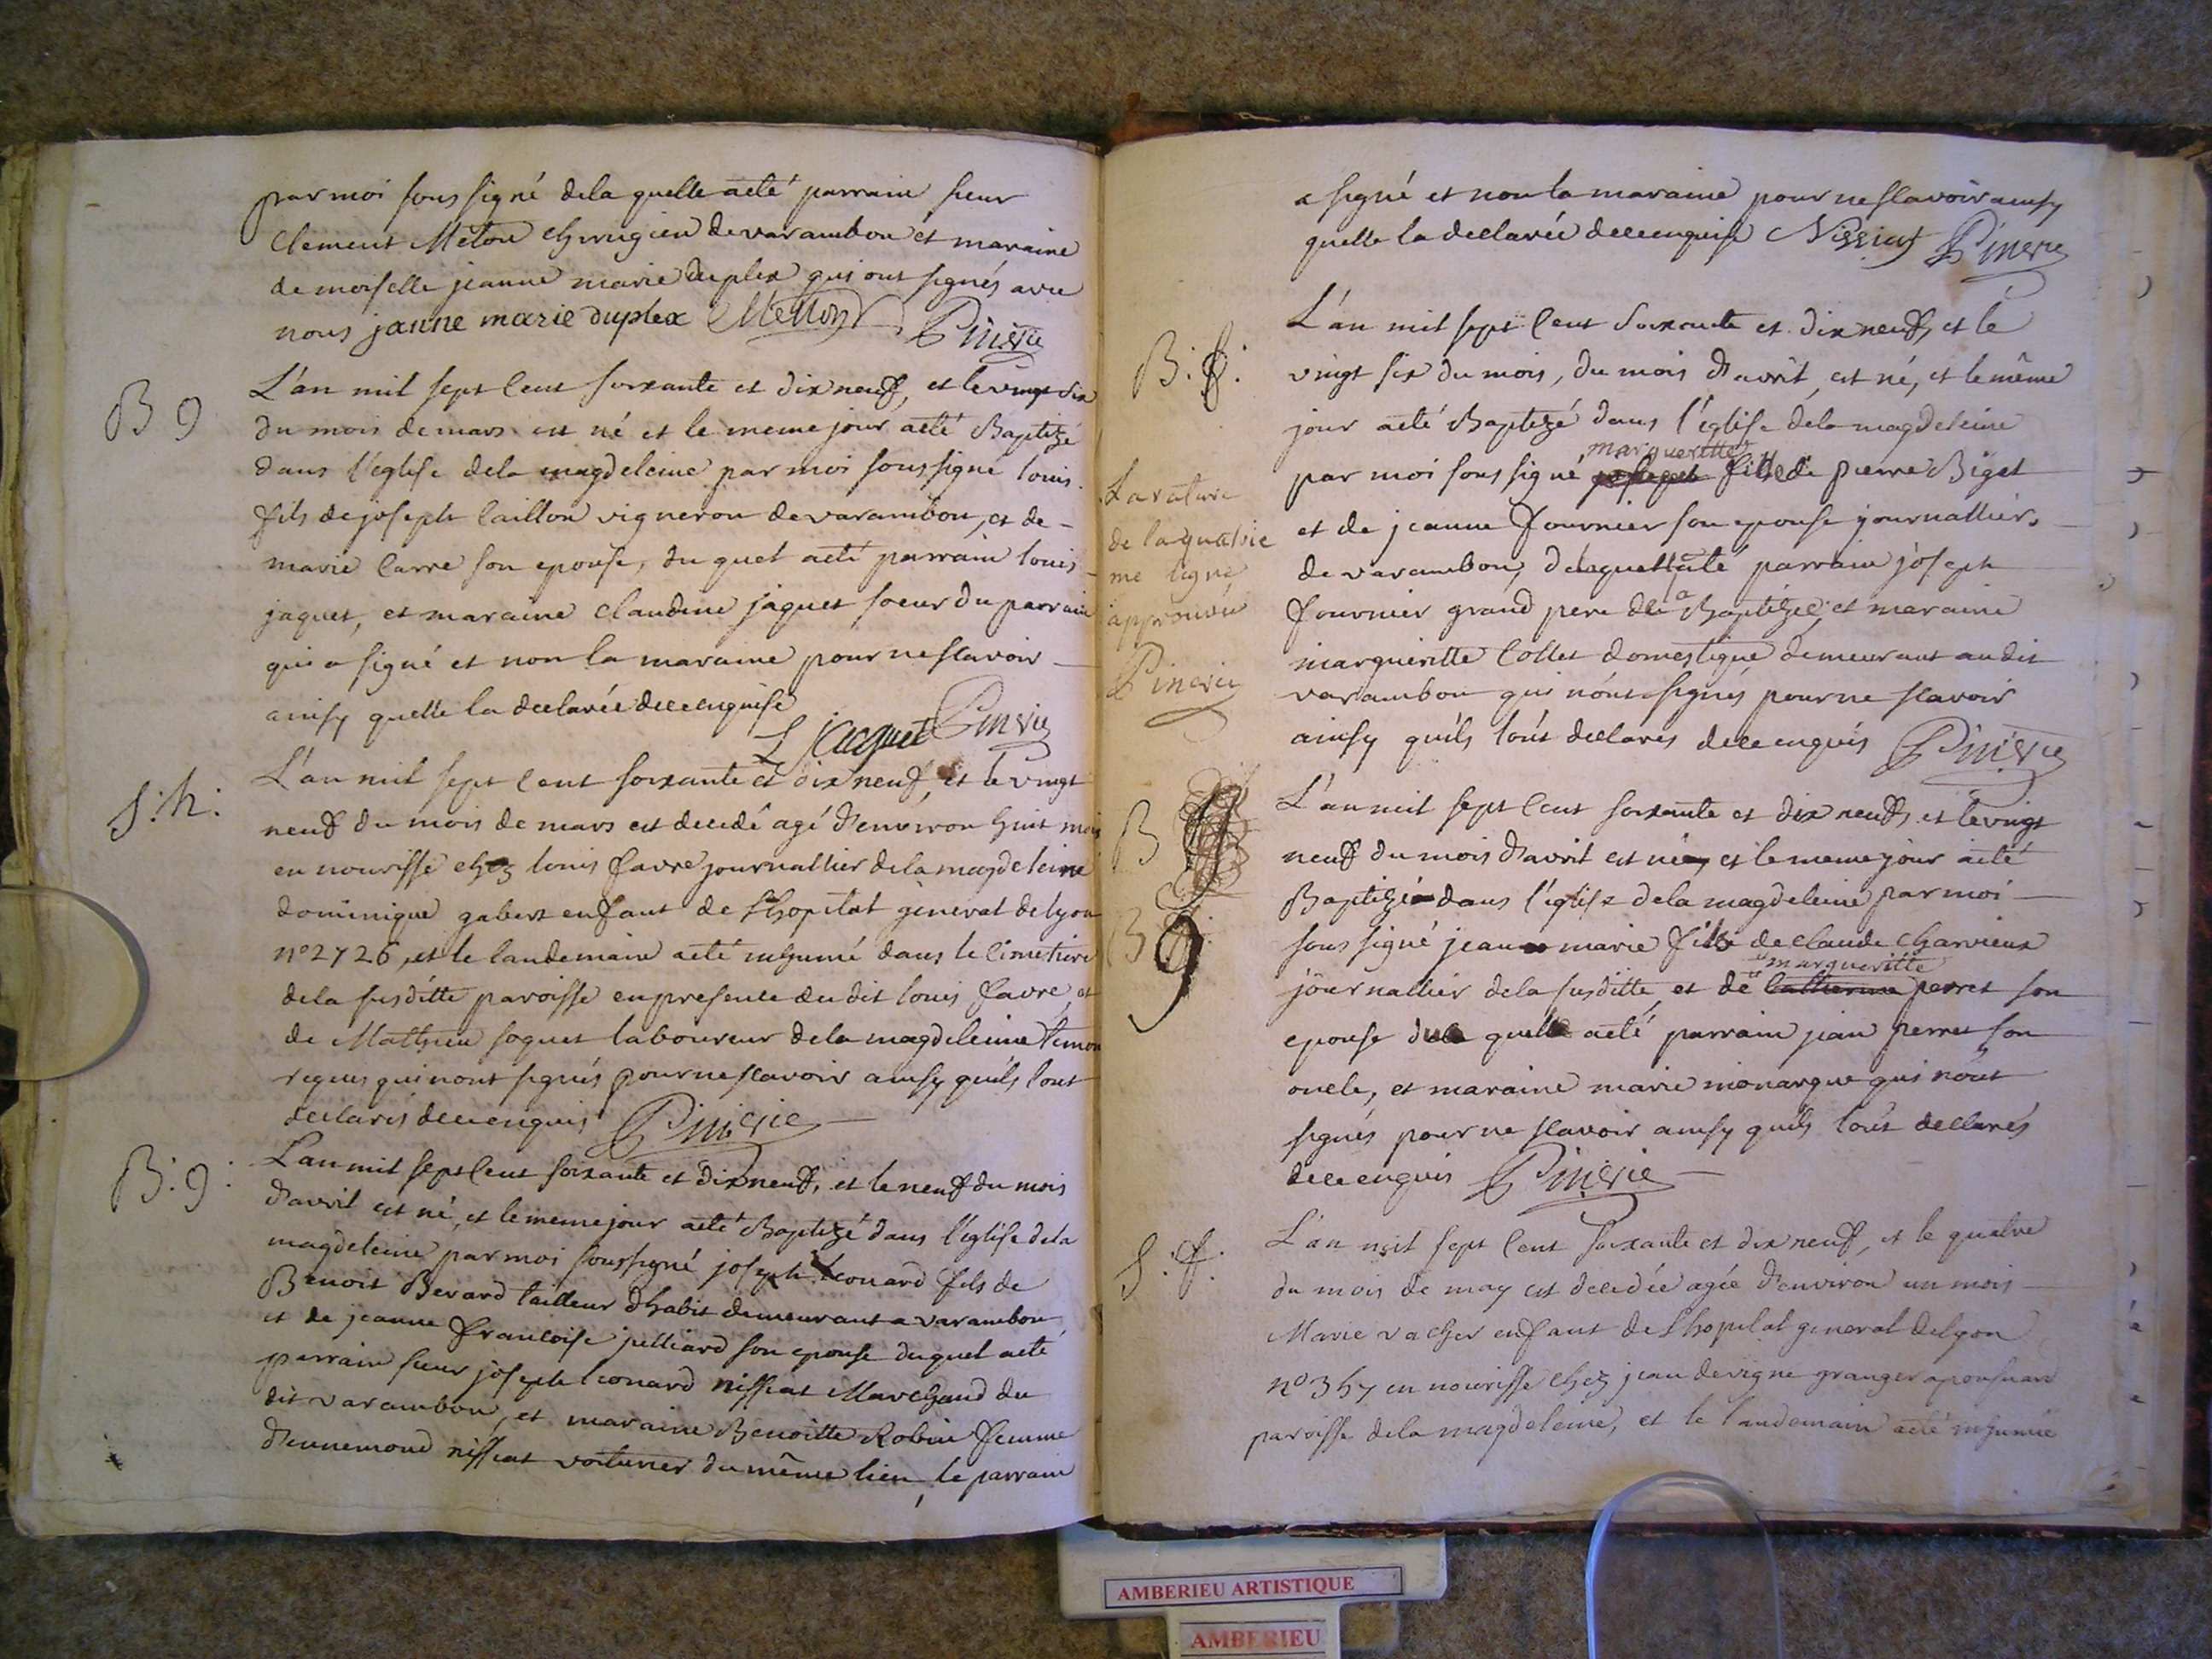 par moi sous signé dela quelle aeté parrain sieur
Clement Méton chirugien de varambon et maraine
de moiselle jeanne marie duplex qui ont signés avec
nous janne marie duplex Metton Pinerie
B g
L'an mil sept Cent soixante et dix neuf, et le vingt six
du mois de mars est né et le meme jour aeté Baptizé
dans l'eglise dela magdeleine par moi sous signé louis
fils de joseph Caillon vigneron de varambon, et de
marie Carre son epouse, du quel aeté parrain louis
jaquet, et maraine Claudine jaquet soeur du parrain
qui a signé et non la maraine pour ne sCavoir
ainsy quelle la declarée de ce enquise
L jacquet Pinerie
S. h.
L'an mil sept Cent soixante et dix neuf, et le vingt
neuf du mois de mars est decedé agé d'environ huit mois
en nourisse chez louis favre journallier dela magdeleine
dominique gabert enfant de l'hopital géneral de lyon
n° 2726, et le landemain aeté inhumé dans le Cimetiere
dela susditte paroisse en presence du dit louis favre et
de Mathieu soquet laboureur dela magdeleine temon
requis qui nont signés pour ne sCavoir ainsy quils lont
declarés de ce enquis Pinerie
B. g.
L'an mil sept Cent soixante et dix neuf, et le neuf du mois
d'avril est né, et le meme jour aeté Baptizé dans l'église dela
magdeleine par moi soussigné joseph Leonard fils de
Benoit Berard tailleur d'habit demeurant a varambon
et de jeanne francoise juilliard son epouse duquel aeté
parrain sieur joseph leonard nissiat Marchand du
dit varambon, et maraine Benoitte Robin femme
d'ennemond nissiat voiturier du même lieu, le parrain
a signé et non la maraine pour ne sCavoir ainsy
quelle la declarée de ce enquise Nissiat Pinerie
B. f.
L'an mil sept Cent soixante et dix neuf, et le
vingt six du mois, du mois d'avril est né, et le même
jour aeté Baptizé dans l'église dela magdeleine
margueritte
par moi sous signé joseph fille de pierre Biget
et de jeanne fournier son epouse journallier
de varambon, delaquelle aeté parrain joseph
fournier grand pere de la Baptizée, et maraine
margueritte Collet domestique demeurant audit
varambon qui nónt signés pour ne sCavoir
ainsy quils lont declarés de ce enquis Pinerie
La rature
de la quatrie
me ligne
approuvée
Pinerie
B g
L'an mil sept Cent soixante et dix neuf, et le vingt
neuf du mois d'avril est né, et le meme jour aeté
Baptizé dans l'église dela magdeleine par moi
B g
sous signé jean marie fils de claude Charvieux
margueritte
journallier dela susditte, et de Catherine perret son
epouse du quel aeté parrain jean perret son
oncle, et maraine marie monarque qui nónt
signés pour ne sCavoir ainsy quils lónt declarés
de ce enquis Pinerie
S. f.
L'an mil sept Cent soixante et dix neuf, et le quatre
du mois de may est decedée agée d'environ un mois
Marie vacher enfant de l'hopital general de lyon
n° 357 en nourisse chez jean devigne granger
paroisse dela magdeleine, et le landemain aeté inhumée
AMBERIEU ARTISTIQUE
AMBERIEU